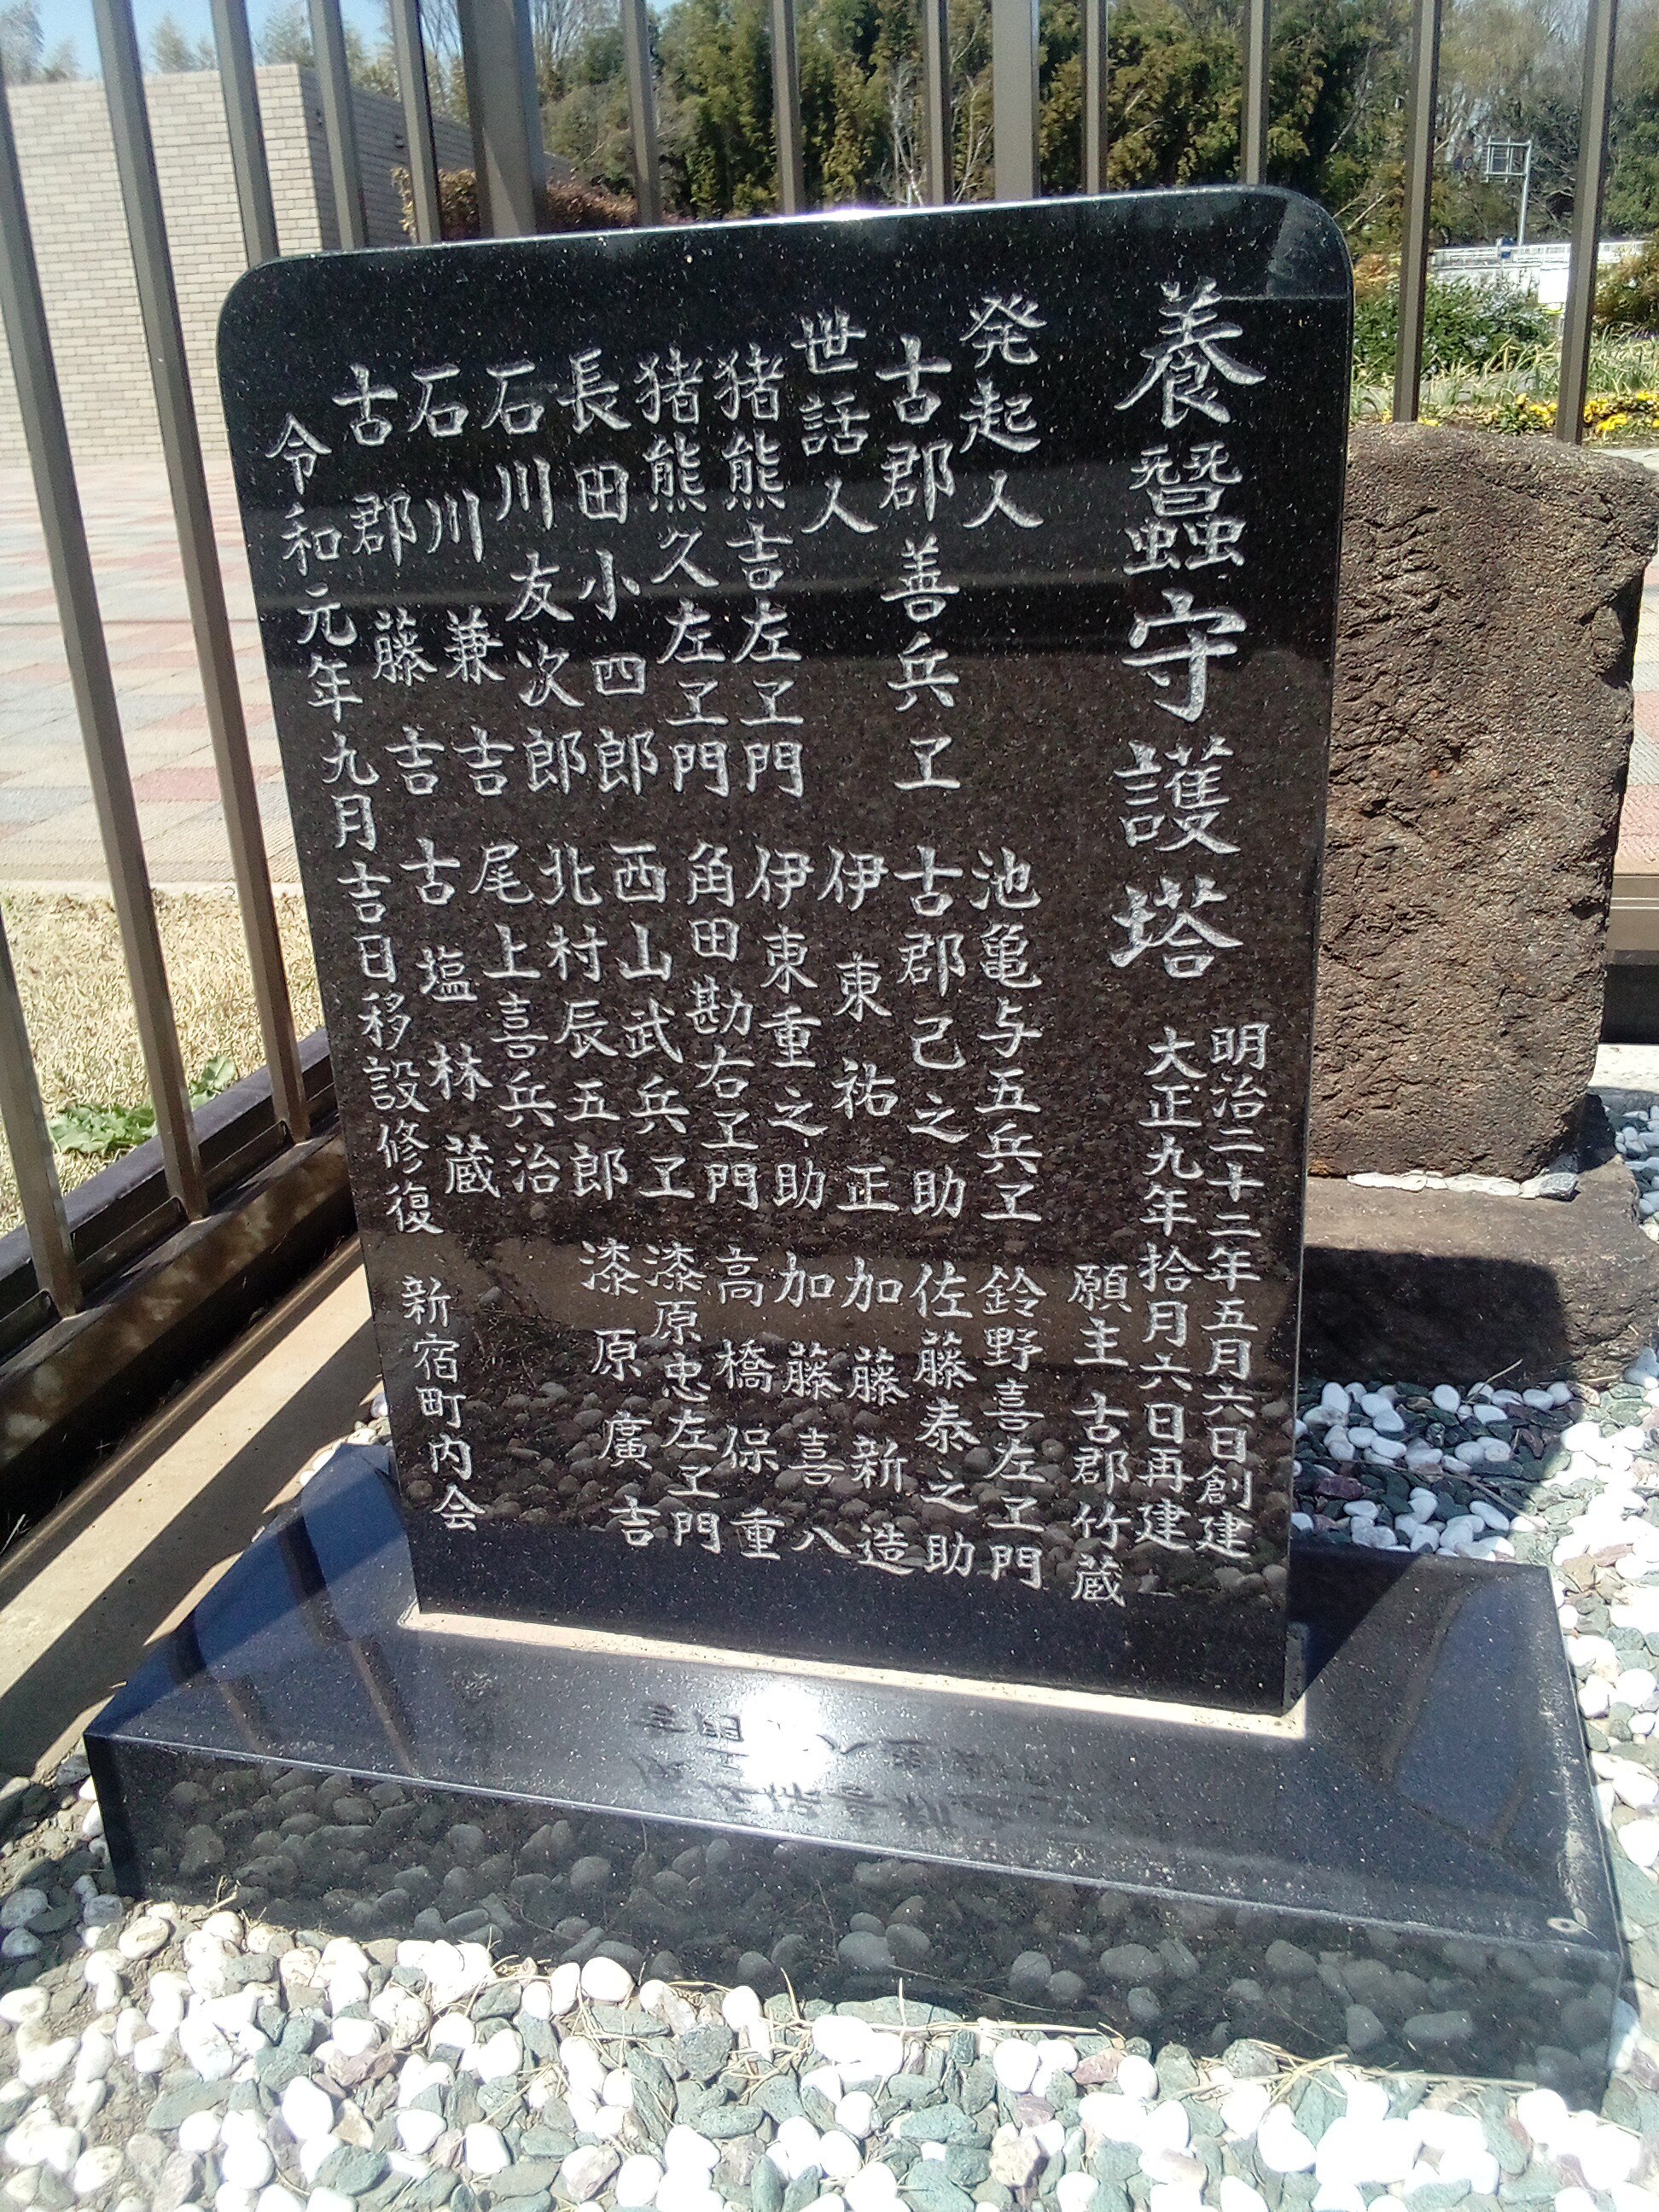 養蠶守護塔
明治二十二年五月六日創建
大正九年拾月六日再建
願主 古郡竹蔵
発起人 池亀与五兵ヱ 鈴野喜左ヱ門
古郡善兵ヱ 古郡己之助 佐藤泰之助
世話人 伊東祐正 加藤新造
猪熊吉左ヱ門 伊東重之助 加藤喜八
猪熊久左ヱ門 角田勘右ヱ門 高橋保重
長田小四郎 西山武兵ヱ 漆原忠左ヱ門
石川友次郎 北村辰五郎 漆原廣吉
石川兼吉 尾上喜兵治
古郡藤吉 古塩林蔵
令和元年九月吉日移設修復 新宿町内会